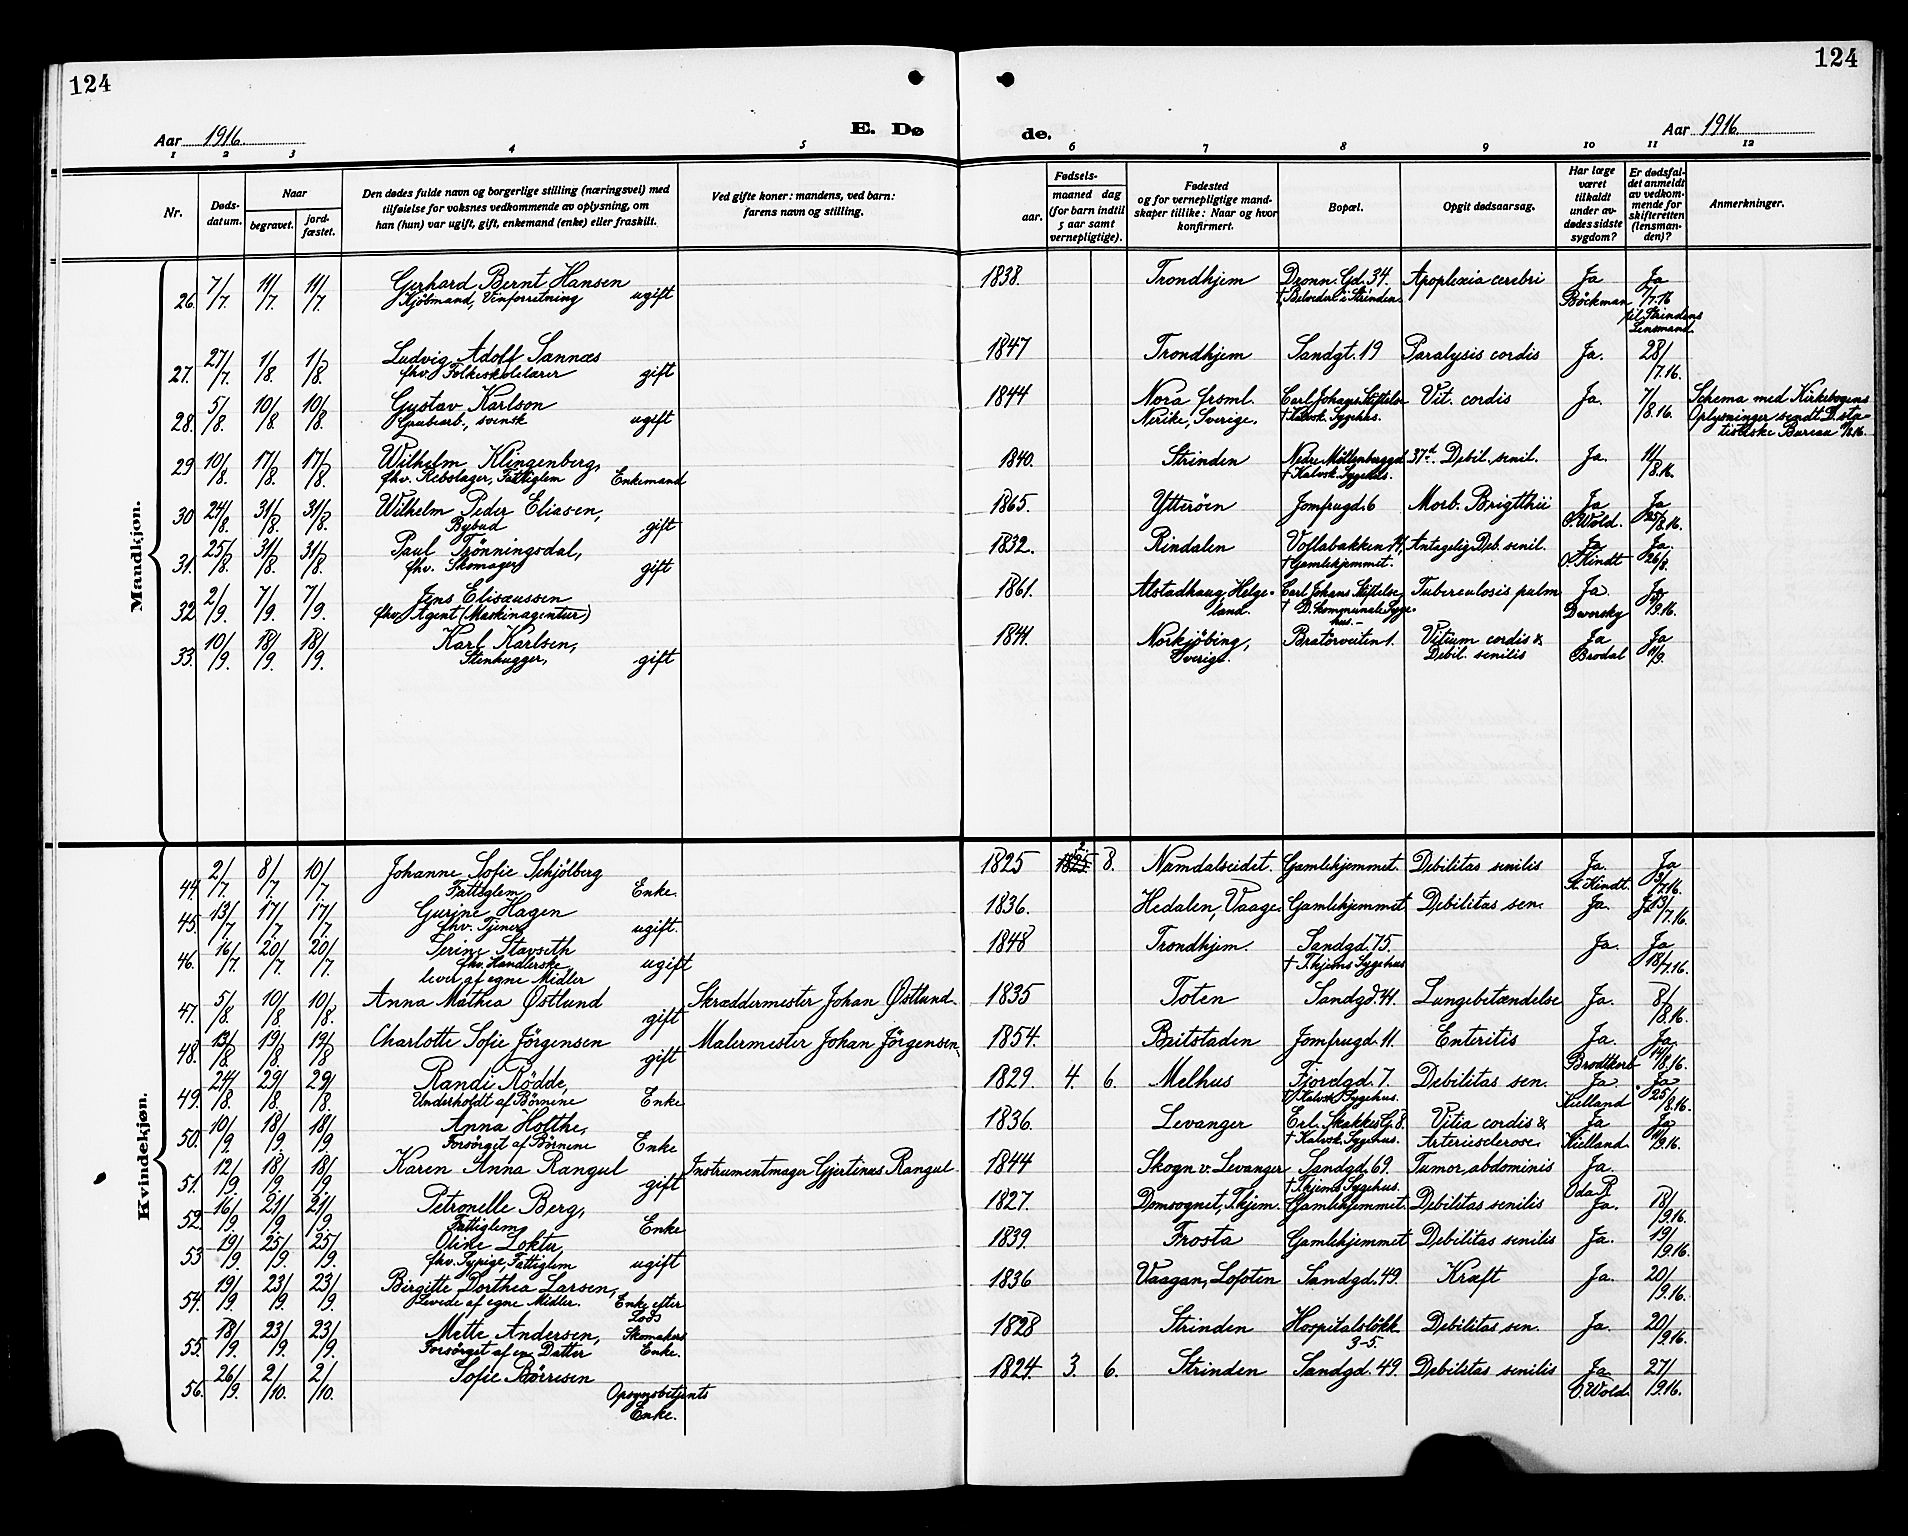 124
124
Aar 1916.
E. Dø
de.
Aar 1916.
1 2 3 4 5 6 7 8 9 10 11 12
Nr.
Døds-
datum.
Naar
begravet.
jord-
fæstet.
Den dødes fulde navn og borgerlige stilling (næringsvei) med
tilføielse for voksnes vedkommende av oplysning, om
han (hun) var ugift, gift, enkemand (enke) eller fraskilt.
Ved gifte koner: mandens, ved barn:
farens navn og stilling.
Fødsels-
aar.
maaned dag
(for barn indtil
5 aar samt
vernepligtige).
Fødested
og for vernepligtige mand-
skaper tillike: Naar og hvor
konfirmert.
Bopæl.
Opgit dødsaarsag.
Har læge
været
tilkaldt
under av-
dødes sidste
sygdom?
Er dødsfal-
det anmeldt
av vedkom-
mende for
skifteretten
(lensman-
den)?
Anmerkninger.
Mandkjøn.
26. 7/7. 11/7. 11/7. Gerhard Bernt Hansen 1838. Trondhjem Dronn. Gd. 34. Apoplexia cerebri Ja Ja
Kjöbmand, Vinforretning ugift † Belvedere i Strinden Böckman 7/7.16
til Strindens
Lensmand.
27. 27/7. 1/8. 1/8. Ludvig Adolf Sannæs 1847 Trondhjem Sandgt. 19 Paralysis cordis Ja. 28/7.16.
fhv. Folkeskolelærer gift
28. 5/8. 10/8. 10/8. Gustav Karlson 1844 Nora Grsml. Carl Johans Stiftelse Vit. cordis Ja. 7/8.16. Schema med Kirkebogens
Grubearb., svensk ugift Nerike, Sverige. † Kalvsk. Sygehus. Oplysninger sendt D. sta-
tistiske Bureau
29 10/8. 17/8. 17/8. Wilhelm Klingenberg, 1840. Strinden Nedre Möllenberggd 37a. Debil. senil. Ja. 11/8.16.
fhv. Rebslager, Fattiglem Enkemand † Kalvsk. Sygehus.
30 24/8. 31/8. 31/8. Wilhelm Peder Eliasen, 1865. Ytterøen Jomfrugd. 6 Morb. Brigtthii Ja Ja
Bybud gift O. Wold. 25/8.16.
31. 25/8 31/8. 31/8. Paul Trönningsdal, 1832. Rindalen Voflabakken 14, Antagelig Deb. senil. Ja Ja.
fhv. Skomager gift † Gamlehjemmet. O. Kindt 26/8.
32. 2/9. 7/9. 7/9. Jens Elisæussen 1861. Alstadhaug, Helge- Carl Johans Stiftelse, Tuberculosis pulm Ja. Ja
fhv. Agent (Maskinagentur) land. † D. kommunale Syge- Davorsky /9.16.
hus.-
33. 10/9. 18/9. 18/9. Karl Karlsen, 1841. Norkjöbing, Bratörveiten 1. Vitium cordis & Ja Ja
Stenhugger, gift Sverige. Debil. senilis Brodal 11/9.
Kvindekjøn.
44. 2/7. 8/7. 10/7. Johanne Sofie Schjölberg 1825 2. 8. Namdalseidet. Gamlehjemmet. Debilitas senilis Ja. Ja
Fattiglem Enke. Kindt. 3/7.16.
45. 13/7 17/7. 17/7. Gurine Hagen 1836. Hedalen, Vaage. Gamlehjemmet Debilitas sen. Ja. Ja 13/7.16.
fhv. Tjener ugift.
46. 16/7. 20/7. 20/7. Serine Stavseth 1848 Trondhjem. Sandgd. 75. Ja. Ja
fhv. Handlerske ugift † T.hjems Sygehus 18/7.16.
lever af egne Midler
47. 5/8. 10/8. 10/8. Anna Mathea Østlund Skræddermester Johan Østlund. 1835 Toten Sandgd. 44. Lungebetændelse Ja. 8/8.16.
gift
48. 13/8 19/8 19/8 Charlotte Sofie Jörgensen Malermester Johan Jörgensen. 1854. Britstaden Jomfrugd. 11. Enteritis Ja. Ja.
gift Brodtkorb 14/8.16.
49. 24/8. 29/8. 29/8. Randi Rödde, 1829. 4. 6. Melhus Fjordgd. 7. Debilitas sen. Ja Ja
Underholdt af Börnene Enke † Kalvsk Sygehus. Kielland 25/8.16.
50. 10/9. 18/9. 18/9. Anna Holthe, 1836. Levanger Erl. Skakkes G. 8. Vitia cordis & Ja Ja
Forsörget af Börnene Enke † Kalvsk. Sygehus. Arteriosclerose. Kielland. 11/9.16.
51. 12/9. 18/9 18/9 Karen Anna Rangul Instrumentmager Gjertinus Rangul. 1844 Skogn v. Levanger Sandgd. 69. Tumor abdominis Ja.
gift † T.hjems Sygehus.
52. 16/9. 21/9. 21/9. Petronelle Berg, 1827. Domsognet, T.hjem. Gamlehjemmet. Debilitas senilis Ja. 18/9.16.
Fattiglem Enke
53 19/9. 25/9. 25/9. Oline Lokter, 1839. Frosta Gamlehjemmet Debilitas senilis Ja. 19/9.16.
fhv. Sypige, Fattiglem ugift
54. 19/9. 23/9. 23/9. Birgitte Dorthea Larsen, 1836 Vaagan, Lofoten Sandgd. 49. Kræft Ja. 20/9.16.
Levede af egne Midler. Enke efter
Lods
55. 18/9. 23/9. 23/9. Mette Andersen, Skomakers 1828 Strinden Hospitalslökk. Debilitas sen. Ja. 20/9.16.
Forsörget af en Datter Enke. 3-5.
56. 26/9. 2/10. 2/10. Sofie Börresen 1824. 3. 6. Strinden Sandgd. 49. Debilitas senilis Ja 27/9.16.
Opsynsbetjents O. Wold.
Enke.